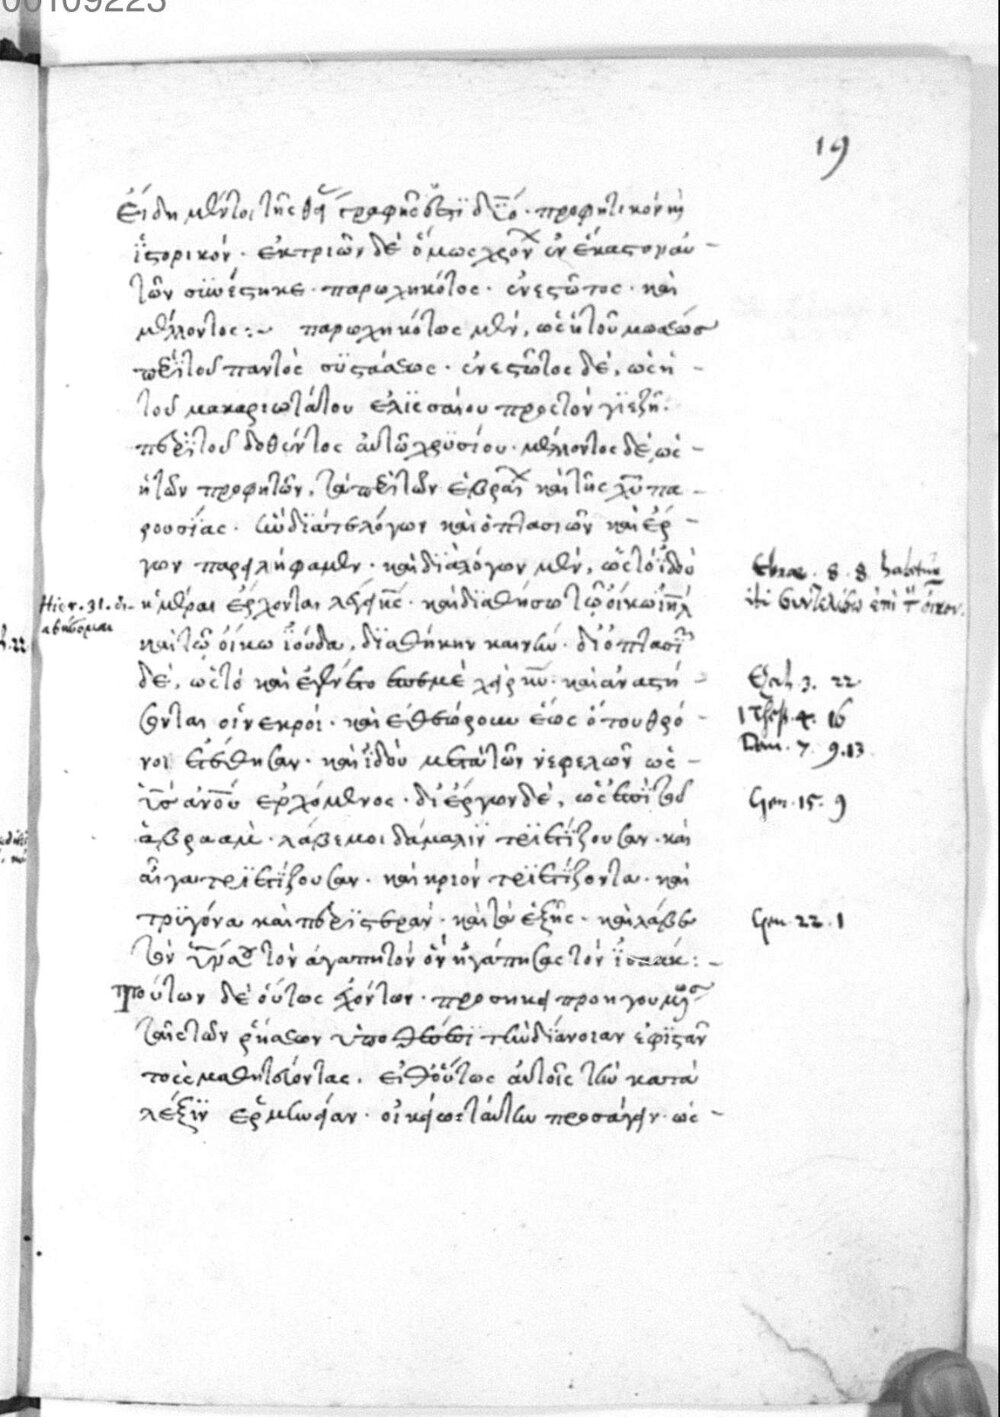 00109223
19
Εἴδη μέντοι τῆς θείας γραφῆς ἐστι δύο· προφητικόν τε
ἱστορικόν· ἐκ τριῶν δὲ ὅμως χρόνων ἓν ἕκαστον αὐ-
τῶν συνέστηκε· παρῳχηκότος· ἐνεστῶτος· καὶ
μέλλοντος:~ παρῳχηκότος μὲν, ὡς ἡ τοῦ μωσέως
περὶ τοῦ παντὸς συστάσεως· ἐνεστῶτος δὲ, ὡς ἡ
τοῦ μακαριωτάτου ἐλισσαίου πρὸς τὸν γιεζῆ·
περὶ τοῦ δοθέντος αὐτῷ χρυσίου· μέλλοντος δὲ, ὡς
ἡ τῶν προφητῶν, τὰ περὶ τῶν ἑβραίων καὶ τῆς χυ πα-
ρουσίας. διά τε λόγων καὶ ὀπτασιῶν καὶ ἔρ-
γων παρειλήφαμεν· καὶ διὰ λόγων μὲν, ὡς τὸ ἰδοὺ
ἡμέραι ἔρχονται λέγει κς· καὶ διαθήσω τῷ οἴκω ιηλ
καὶ τῷ οἴκω ἰούδα, διαθήκην καινήν· δι' ὀπτασιῶν
δὲ, ὡς τὸ καὶ ἐγένετο ἐπ' ἐμὲ χεὶρ κυ· καὶ ἀναστή-
σονται οἱ νεκροί· καὶ ἐθεώρουν ἕως ὅτου θρό-
νοι ἐτέθησαν· καὶ ἰδοὺ μετὰ τῶν νεφελῶν ὡς
υς ανου ἐρχόμενος· δι' ἔργων δὲ, ὡς ἐπὶ τοῦ
ἀβραὰμ· λάβε μοι δάμαλιν τριετίζουσαν· καὶ
αἶγα τριετίζουσαν· καὶ κριὸν τριετίζοντα· καὶ
τρυγόνα καὶ περιστεράν· καὶ τὰ ἑξῆς· καὶ λάβε
τὸν υν σου τὸν ἀγαπητὸν ὃν ἠγάπησας τὸν ἰσαάκ:~
Τούτων δὲ οὕτως ἐχόντων· προσήκει προηγουμένως
ταῖς τῶν ῥήσεων ὑποθέσεσι τὴν διάνοιαν ἐφιστᾶν
τοὺς μαθητιῶντας. εἶθ' οὕτως αὐτοῖς τὴν κατὰ
λέξιν ἑρμηνείαν· οἰκείως ταύτην προσάγειν· ὡς-
Hier. 31. δι-
αθήσομαι
Ebrae. 8. 8. habetur
ibi συντελέσω ἐπὶ τὸν οἶκον.
Ezech. 3. 22
1 Thess. 4. 16
Dan. 7. 9.13
Gen. 15. 9
Gen. 22. 1